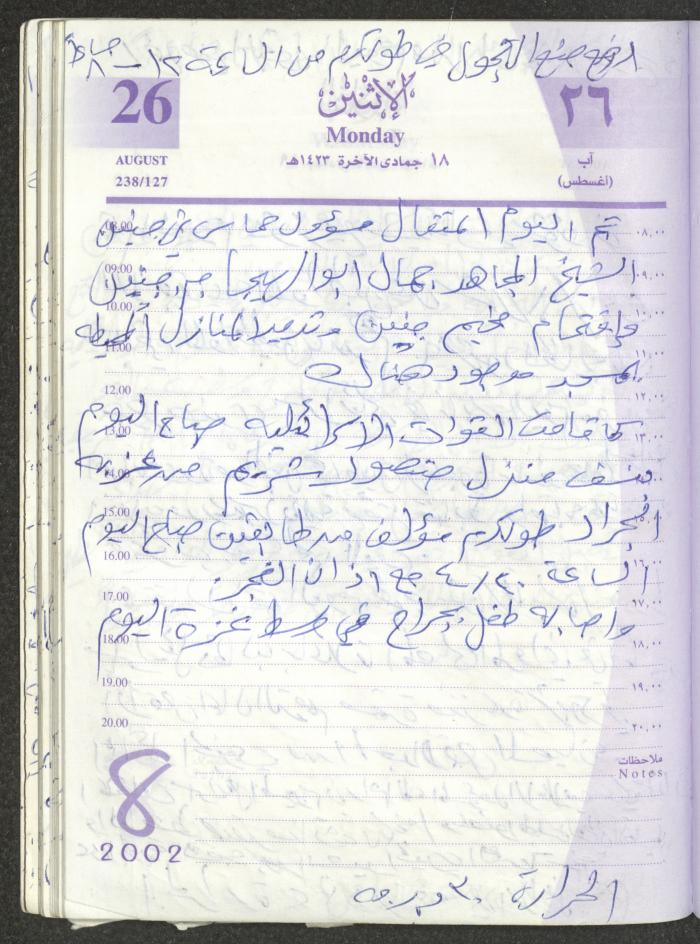 رفع منع التجول في طولكرم من الساعة ١٢ – ٨ صباحا
26
الإثنين
٢٦
Monday
AUGUST
١٨ جمادى الآخرة ١٤٢٣هـ
آب
238/127
(أغسطس)
تم اليوم اعتقال مسؤول حماس في جنين
الشيخ المجاهد جمال ابو الهيجا من جنين
واقتحام مخيم جنين وتدمير المنازل المحيطه
بمسجد موجود هناك
كما قامت القوات الاسرائيليه صباح اليوم
بنسف منزل منصور شريم من عزبة
الجراد طولكرم مؤلف من طابقين صباح اليوم
الساعة ٤/٣٠ مع اذان الفجر.
واصابه طفل بجراح في وسط غزة اليوم
08.00 ٠٨,٠٠
09.00 ٠٩,٠٠
10.00 ١٠,٠٠
11.00 ١١,٠٠
12.00 ١٢,٠٠
13.00 ١٣,٠٠
14.00
15.00
16.00 ١٦,٠٠
17.00 ١٧,٠٠
18.00 ١٨,٠٠
19.00 ١٩,٠٠
20.00 ٢٠,٠٠
ملاحظات
Notes
8
2002
الحرارة ٣٠ درجه